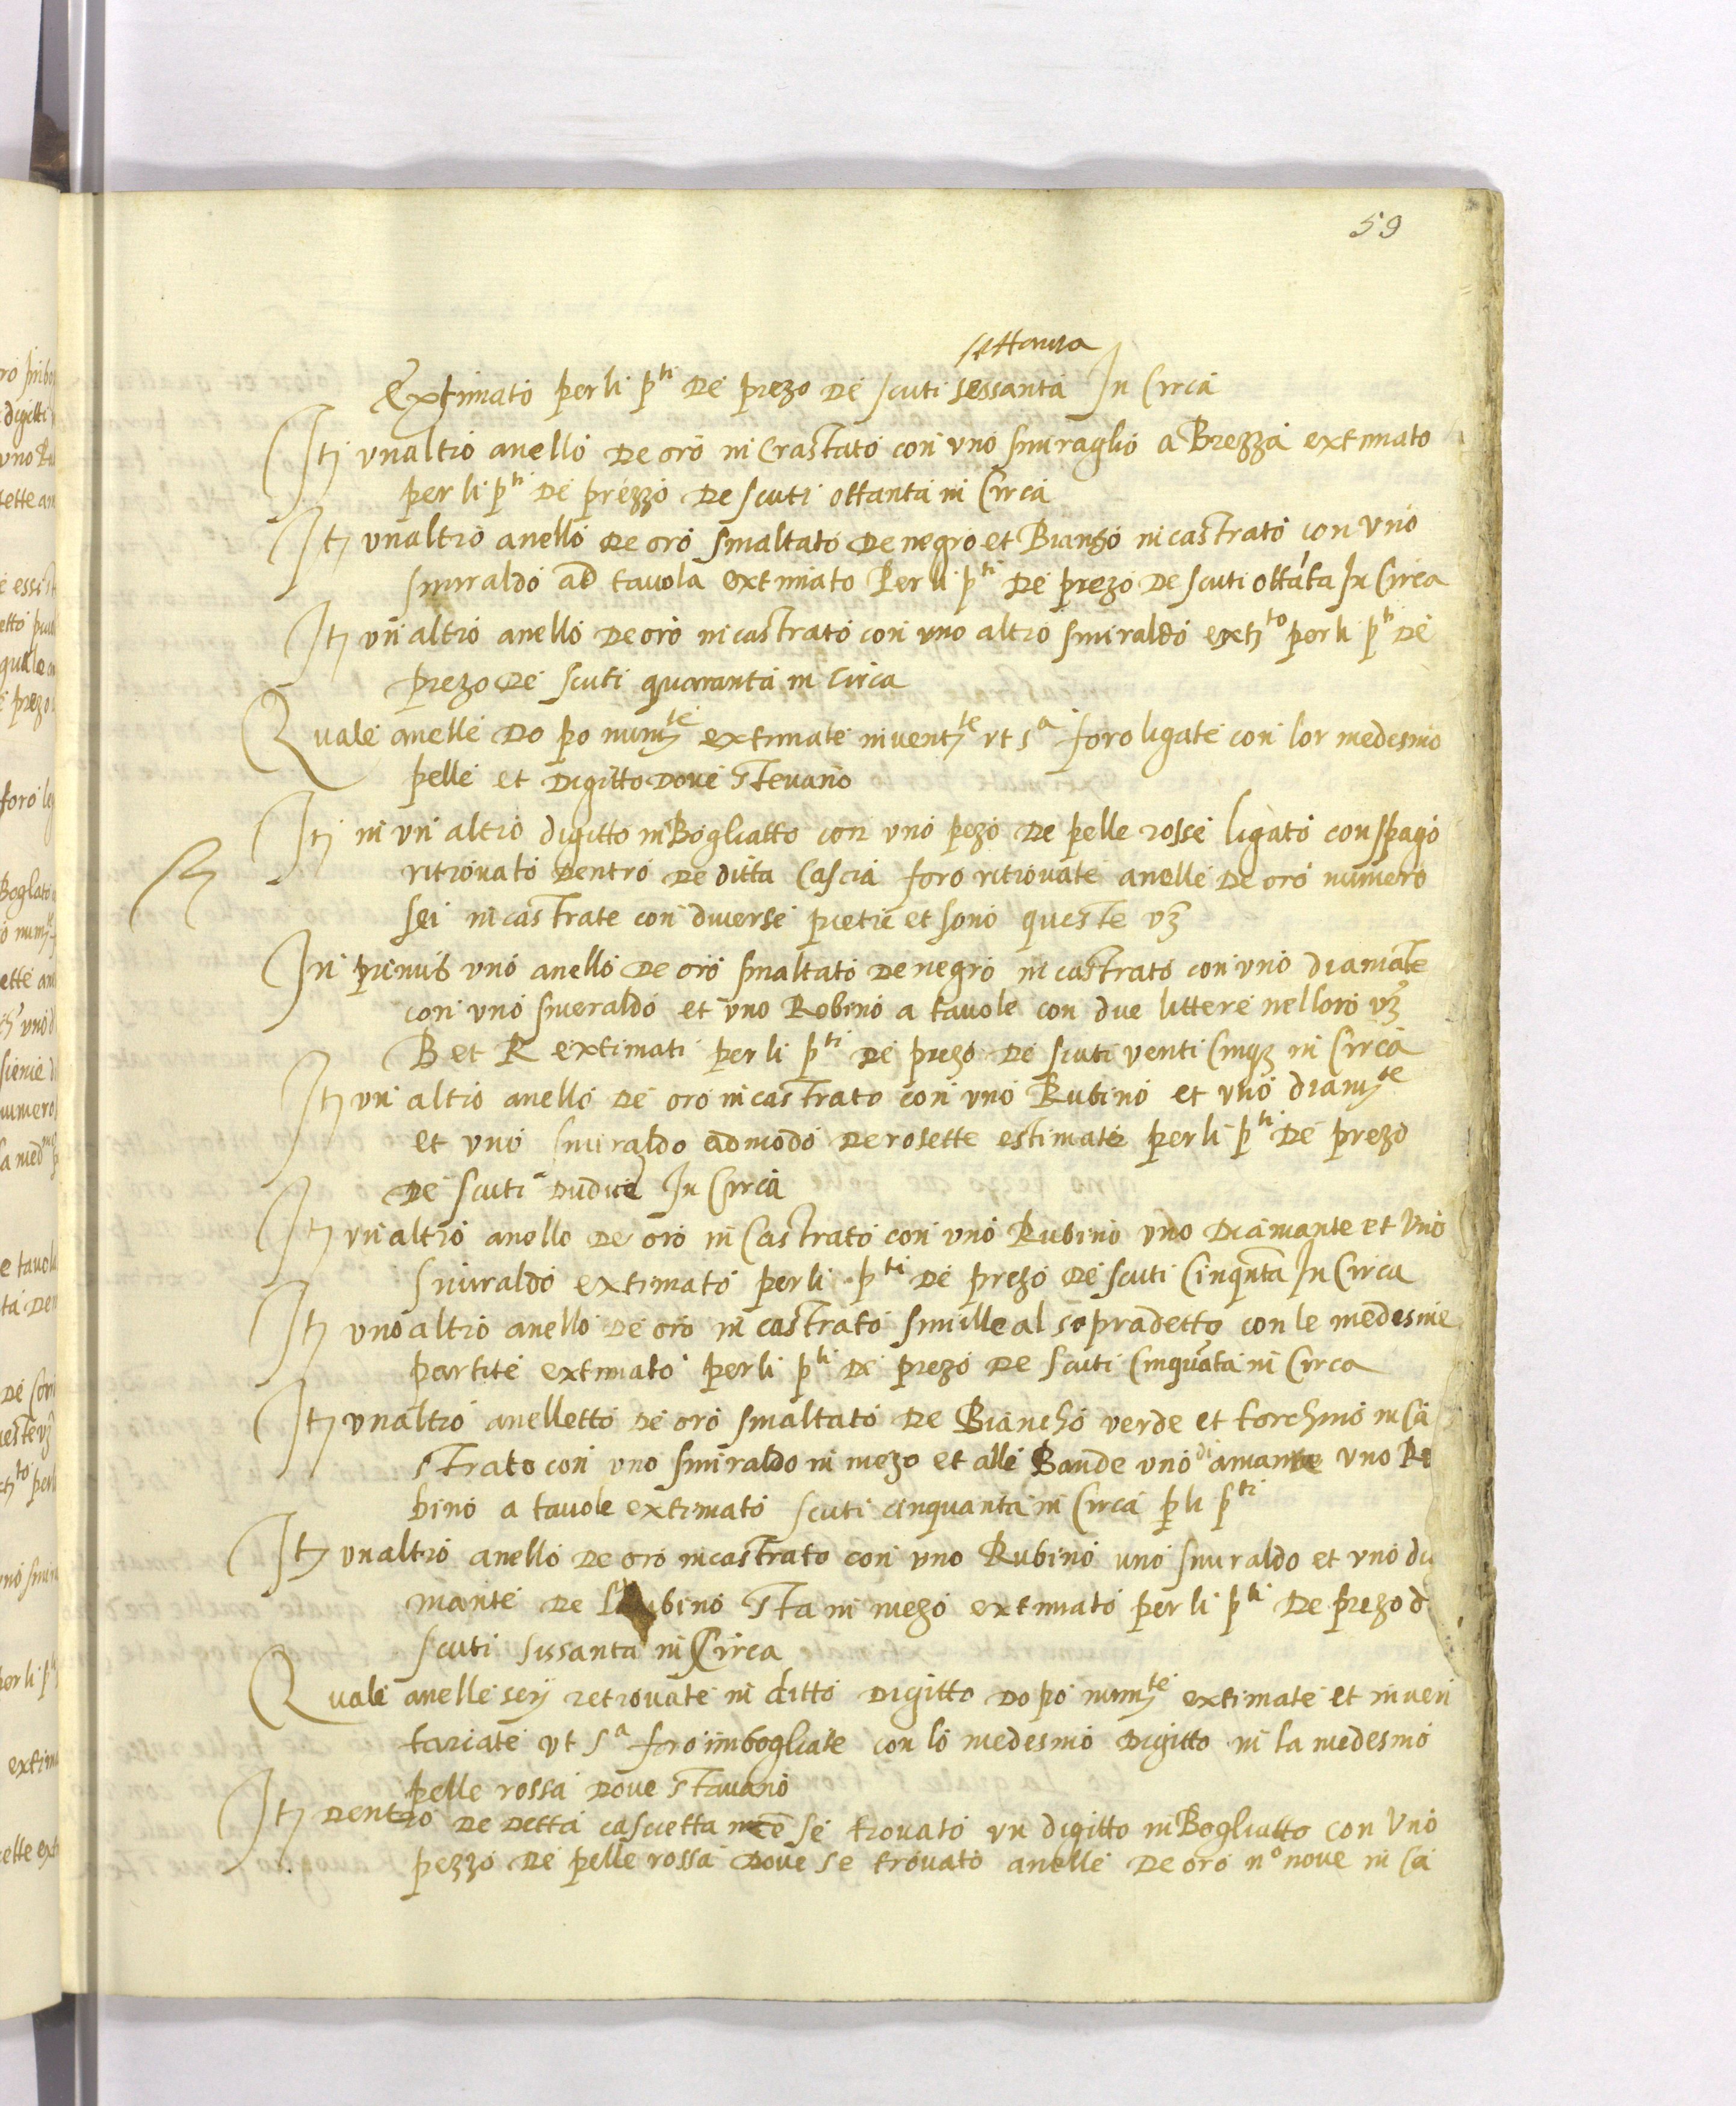 59
settanta
Extimato per li p^ti de prezo de scuti sessanta In Circa
Itʒ unaltro anello de oro incrastato con uno smiraglio a Brezza extimato
per li p^ti de prezzo de scuti ottanta in Circa
Itʒ unaltro anello de oro smaltato de negro et Bianso incastrato con uno
smiraldo ad tavola extimato Per li p^ti de prezo de scuti ottāta In Circa
Itʒ un altro anello de oro incastrato con uno altro smiraldo extʒ^to per li p^ti de
prezo de scuti quaranta in circa
Quale anelle dopo numʒ^te extimate inventʒ^te ut s^a foro ligate con lor medesmo
pelle et digitto dove stevano
Itʒ in un altro digitto in Bogliatto con uno pezo de pelle rosse ligato con spago
ritrovato dentro de ditta Cascia foro ritrovate anelle de oro numero
sei incastrate con diverse prietre et sono queste vʒ
In primis uno anello de oro smaltato de negro incastrato con uno diamāte
con uno smeraldo et uno Robino a tavole con due littere nelloro vʒ
B et R extimati per li p^ti de prezo de scuti venti Cinqʒ in Circa
Itʒ un altro anello de oro incastrato con uno Rubino et uno diamʒ^te
et uno smiraldo ad modo de rosette estimate per li p^ti de prezo
de scuti dudice In Circa
Itʒ un altro anello de oro in Castrato con uno Rubino uno Diamante et uno
Smiraldo extimato per li p^ti de prezo de scuti Cinqnta In Circa
Itʒ uno altro anello de oro in castrato simille al sopradetto con le medesme
partite extimato per li p^ti de prezo de scuti Cinquāta in Circa
Itʒ unaltro anelletto de oro smaltato de Biancho verde et torchino in Ca
strato con uno smiraldo in mezo et alle Bande uno diamante uno Ro
bino a tavole extimato scuti cinquanta in Circa p li p^ti
Itʒ unaltro anello de oro incastrato con uno Rubino uno smiraldo et uno dia
mante de lo Rubino sta in mezo extimato per li p^ti de prezo d
scuti sissanta in Circa
Quale anelle seij retrovate in ditto digitto dopo numʒ^te extimate et inven
tariate ut s^a foro imbogliate con lo medesmo digitto in la medesmo
pelle rossa dove stavano
Itʒ dentro de detta cascietta nce se trovato un digitto in Bogliatto con uno
pezzo de pelle rossa dove se trovato anelle de oro n^o nove in Ca